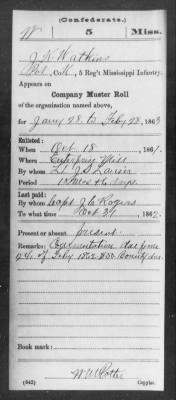 (Confederate.)
W 5 Miss.
J. K. Watkins
Co. K, 5 Reg't Mississippi Infantry.
Appears on
Company Muster Roll
of the organization named above,
for Jany 28 to Feby 28, 1863
Enlisted:
When Oct 18, 1861.
Where Mill
By whom Lt. J. S.
Period 12 mos & days
Last paid:
By whom Capt J. C. Rogers
To what time Oct 31, 1862.
Present or absent present.
Remarks: Commutation due from
of Feby 1862 $50 Bounty due.
Book mark:
(642) Copyist.